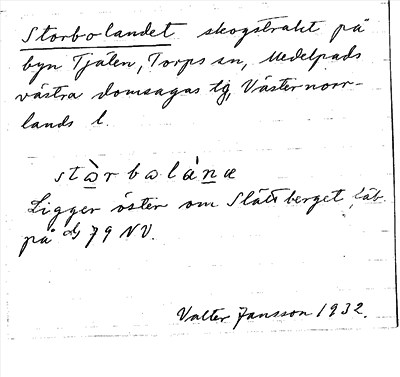 Storbolandet skogstrakt på
byn Tjälen, Torps sn, Medelpads
västra domsagas tg, Västernorr-
lands l.
stɷ̀rbɷlánæ
Ligger öster om Slättberget,
på 79 NV.
Valter Jansson 1932.